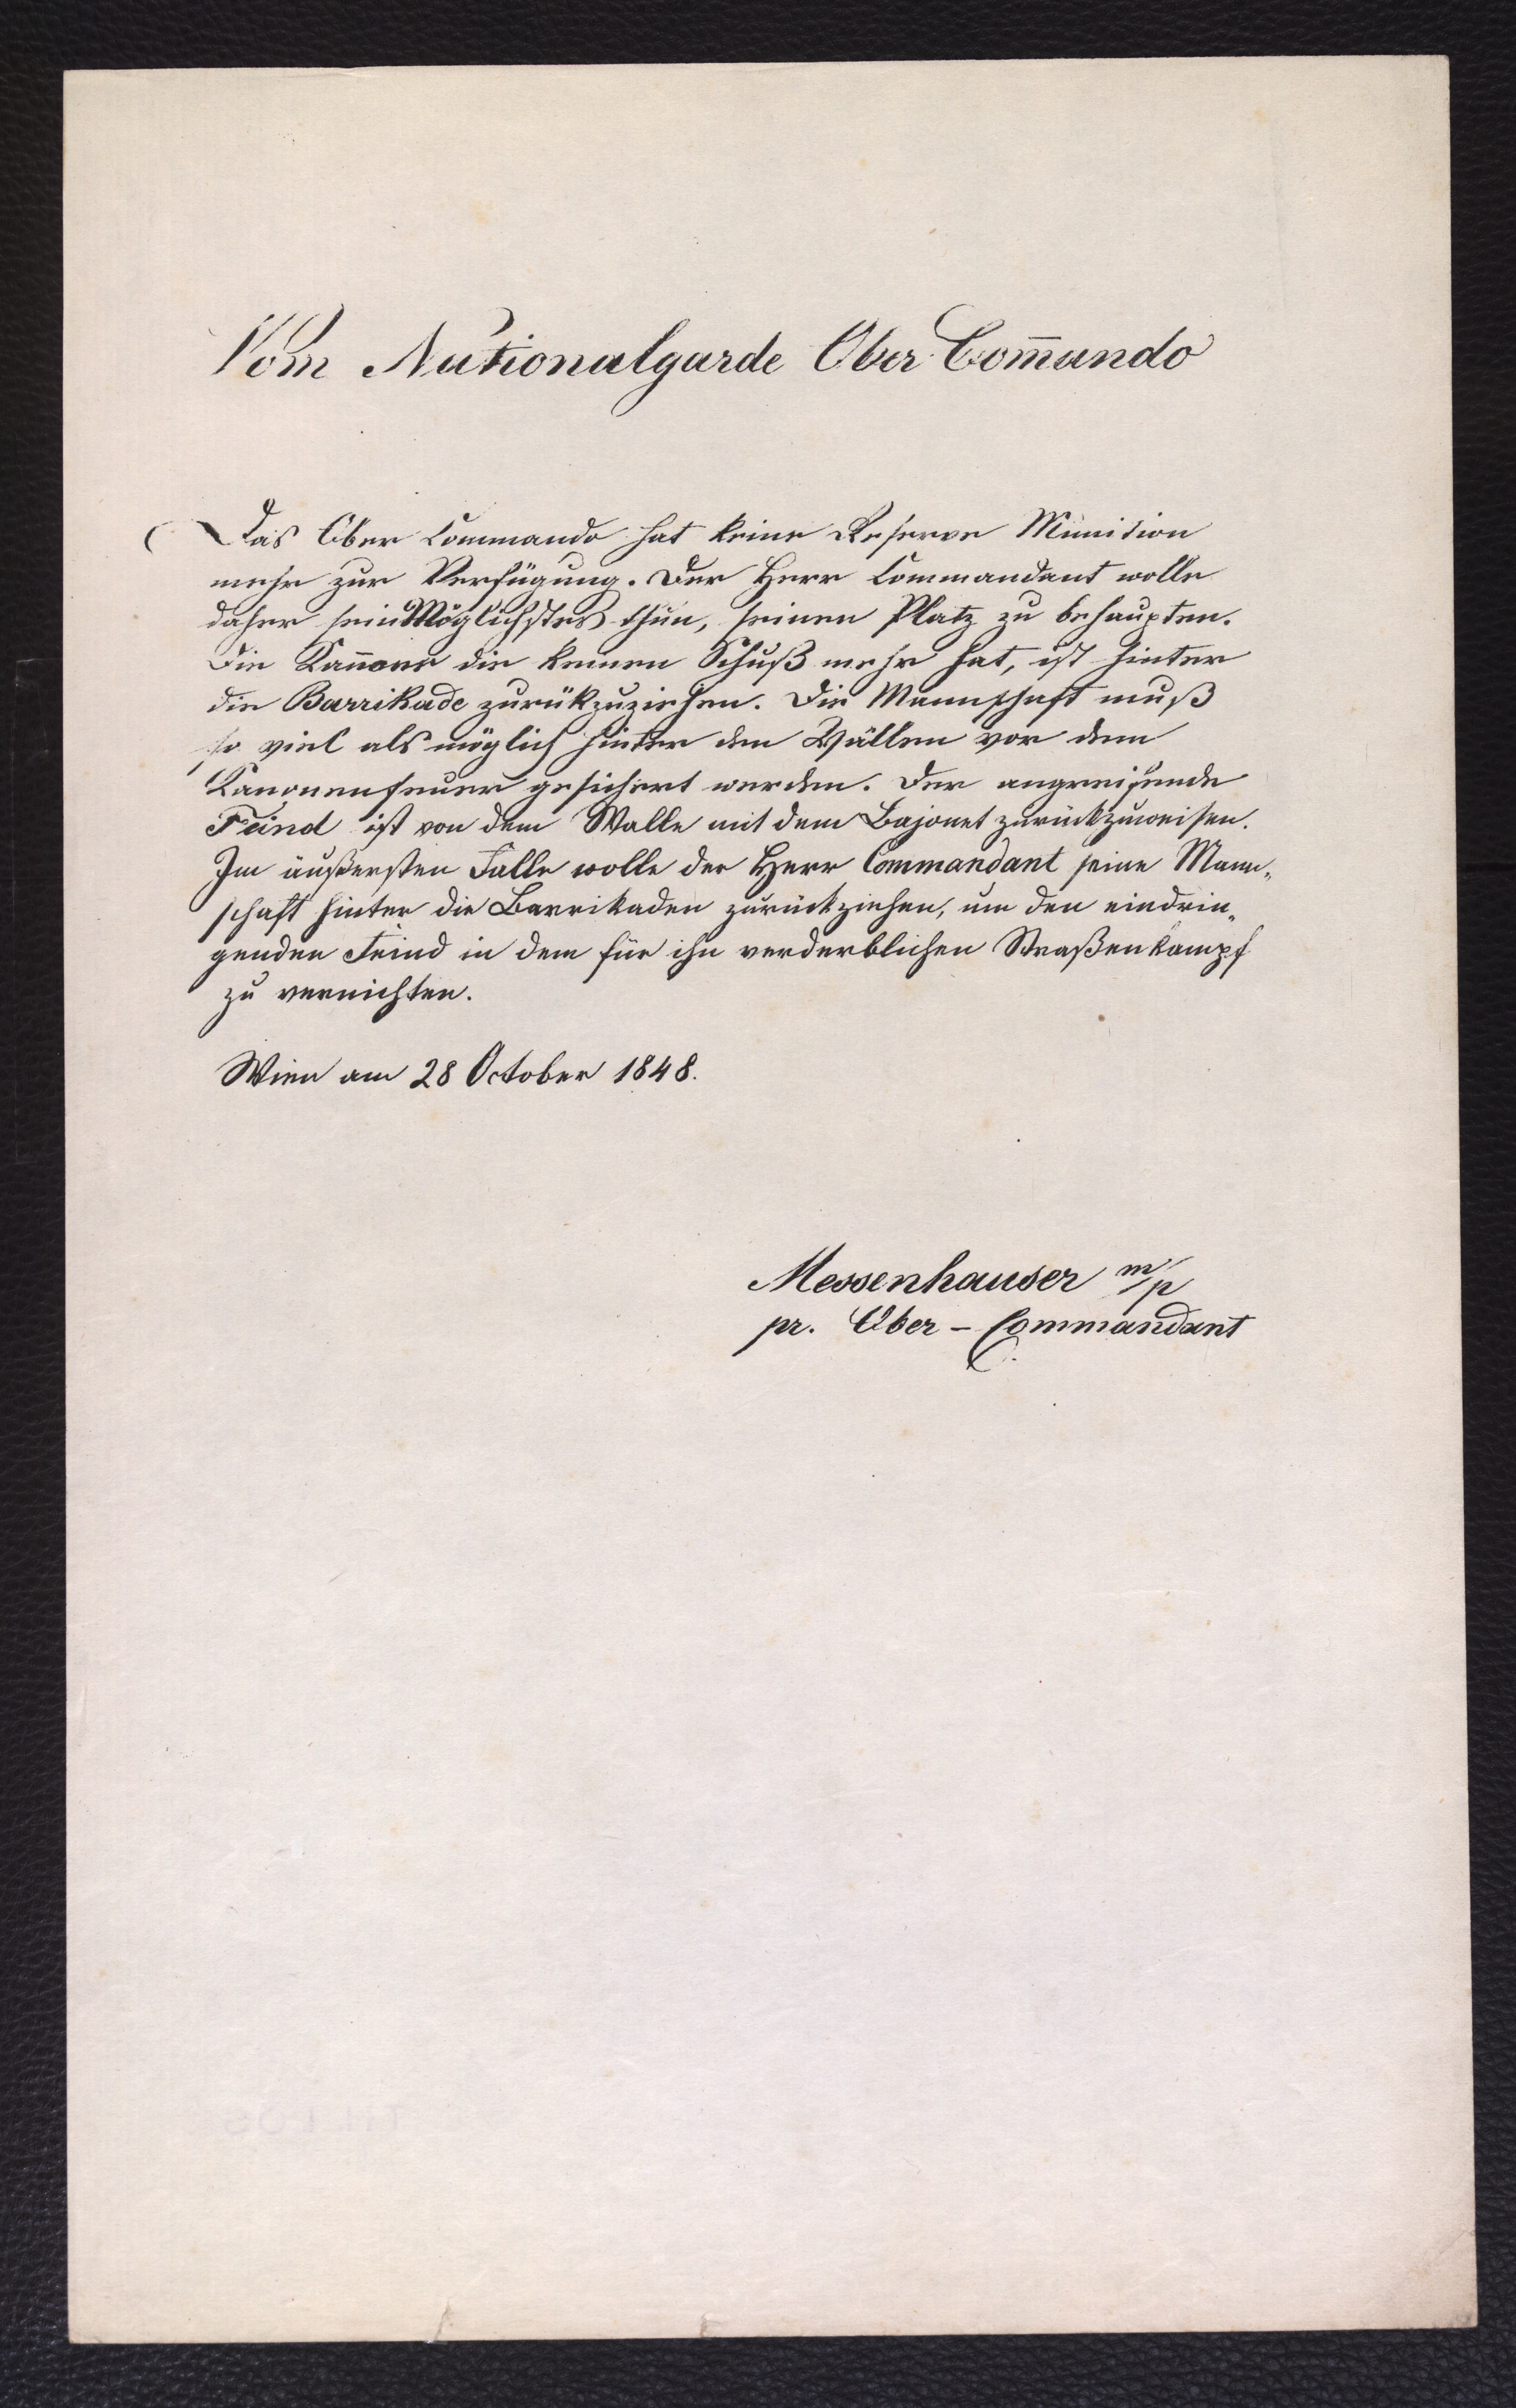 Vom Nationalgarde Ober Com̄ando
Das Ober Commando hat keine Reserve Munition
mehr zur Verfügung. Der Herr Commandant wolle
daher sein Möglichstes thun, seinen Platz zu behaupten.
Die Kan̄one die keinen Schuß mehr hat, ist hinter
die Barrikade zurükzuziehen. Die Mannschaft muß
so viel als möglich hinter den Wällen vor dem
Kanonenfeuer gesichert werden. Der angreifende
Feind ist von dem Walle mit dem Bajonet zurückzuweisen.
Im äußersten Falle wolle der Herr Commandant seine Mann„
schaft hinter die Barrikaden zurückziehen, um den eindrin„
genden Feind in dem für ihn verderblichen Straßenkampf
zu vernichten.
Wien am 28 October 1848.
Messenhauser m/p
pr. Ober - Commandant